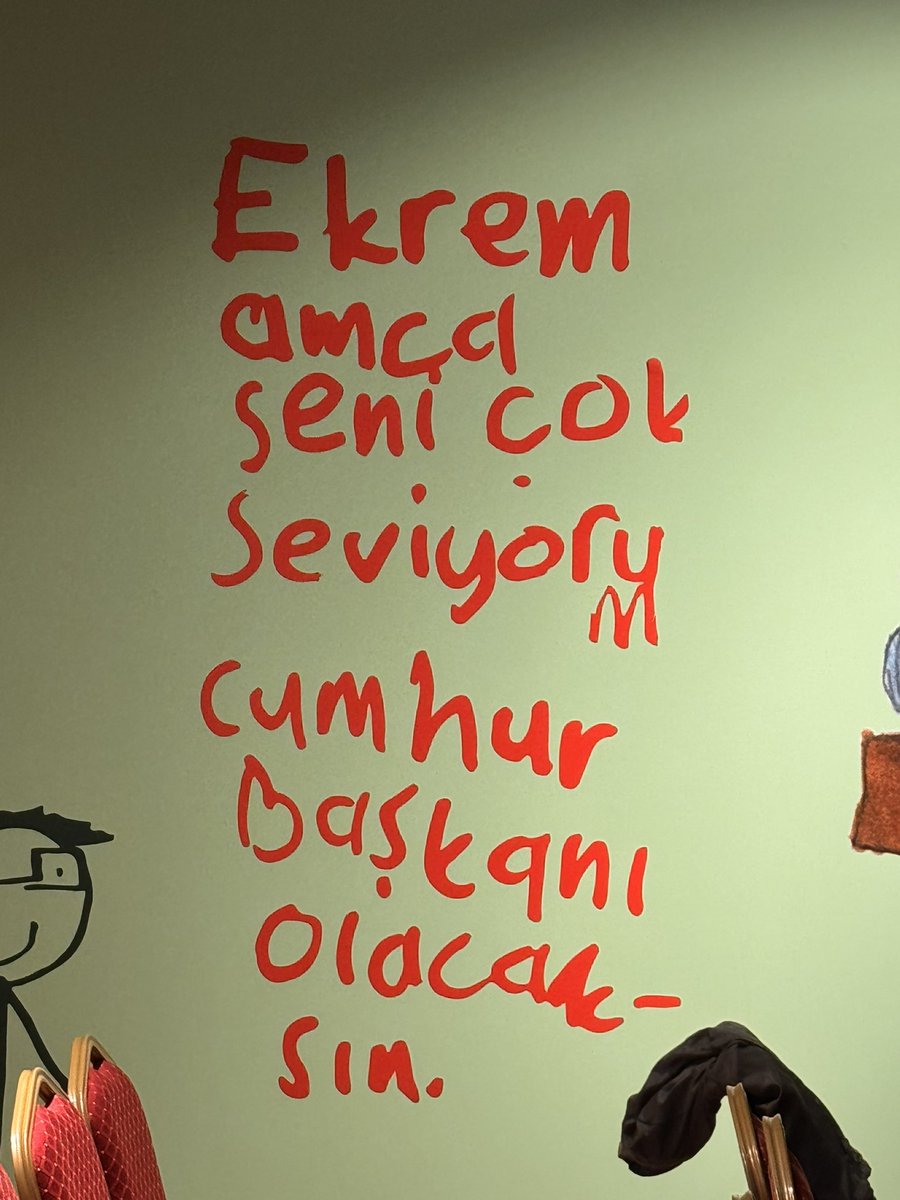 Ekrem
amca
seni çok
Seviyoru
m
cumhur
Başkanı
olacak-
sın.